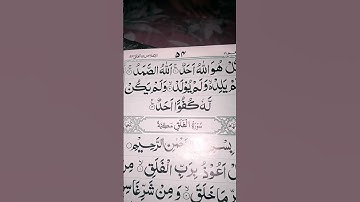 ۵۴
هُوَ اللّٰهُ اَحَدٌ ۚ اَللّٰهُ الصَّمَدُ ۚ
يَلِدْ ۙ وَلَمْ يُوْلَدْ ۙ وَلَمْ يَكُنْ
لَّهٗ كُفُوًا اَحَدٌ
سُوْرَةُ الْفَلَقِ مَكِّيَّةٌ
الرَّحِيْمِ
اَعُوْذُ بِرَبِّ الْفَلَقِ ۙ مِنْ
مَا خَلَقَ ۙ وَمِنْ شَرِّ غَاسِقٍ